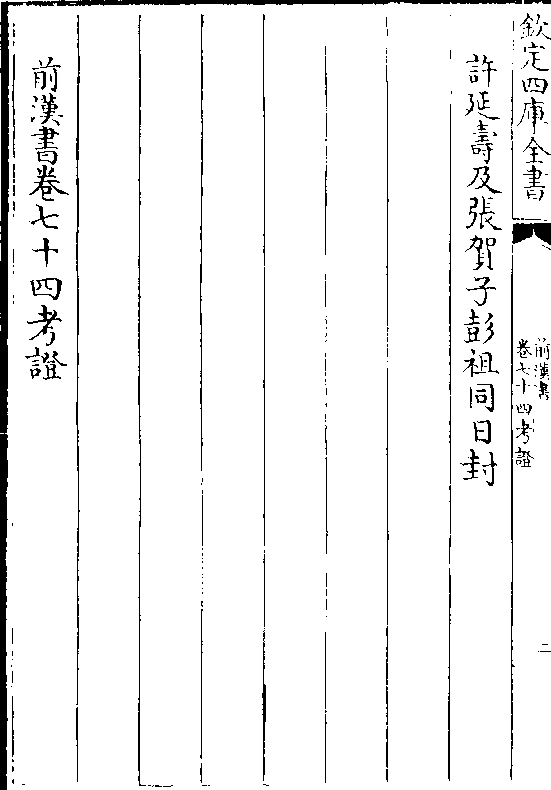 欽定四庫全書
前漢書
卷七十四考證
二
許延壽及張賀子彭祖同日封
前漢書卷七十四考證